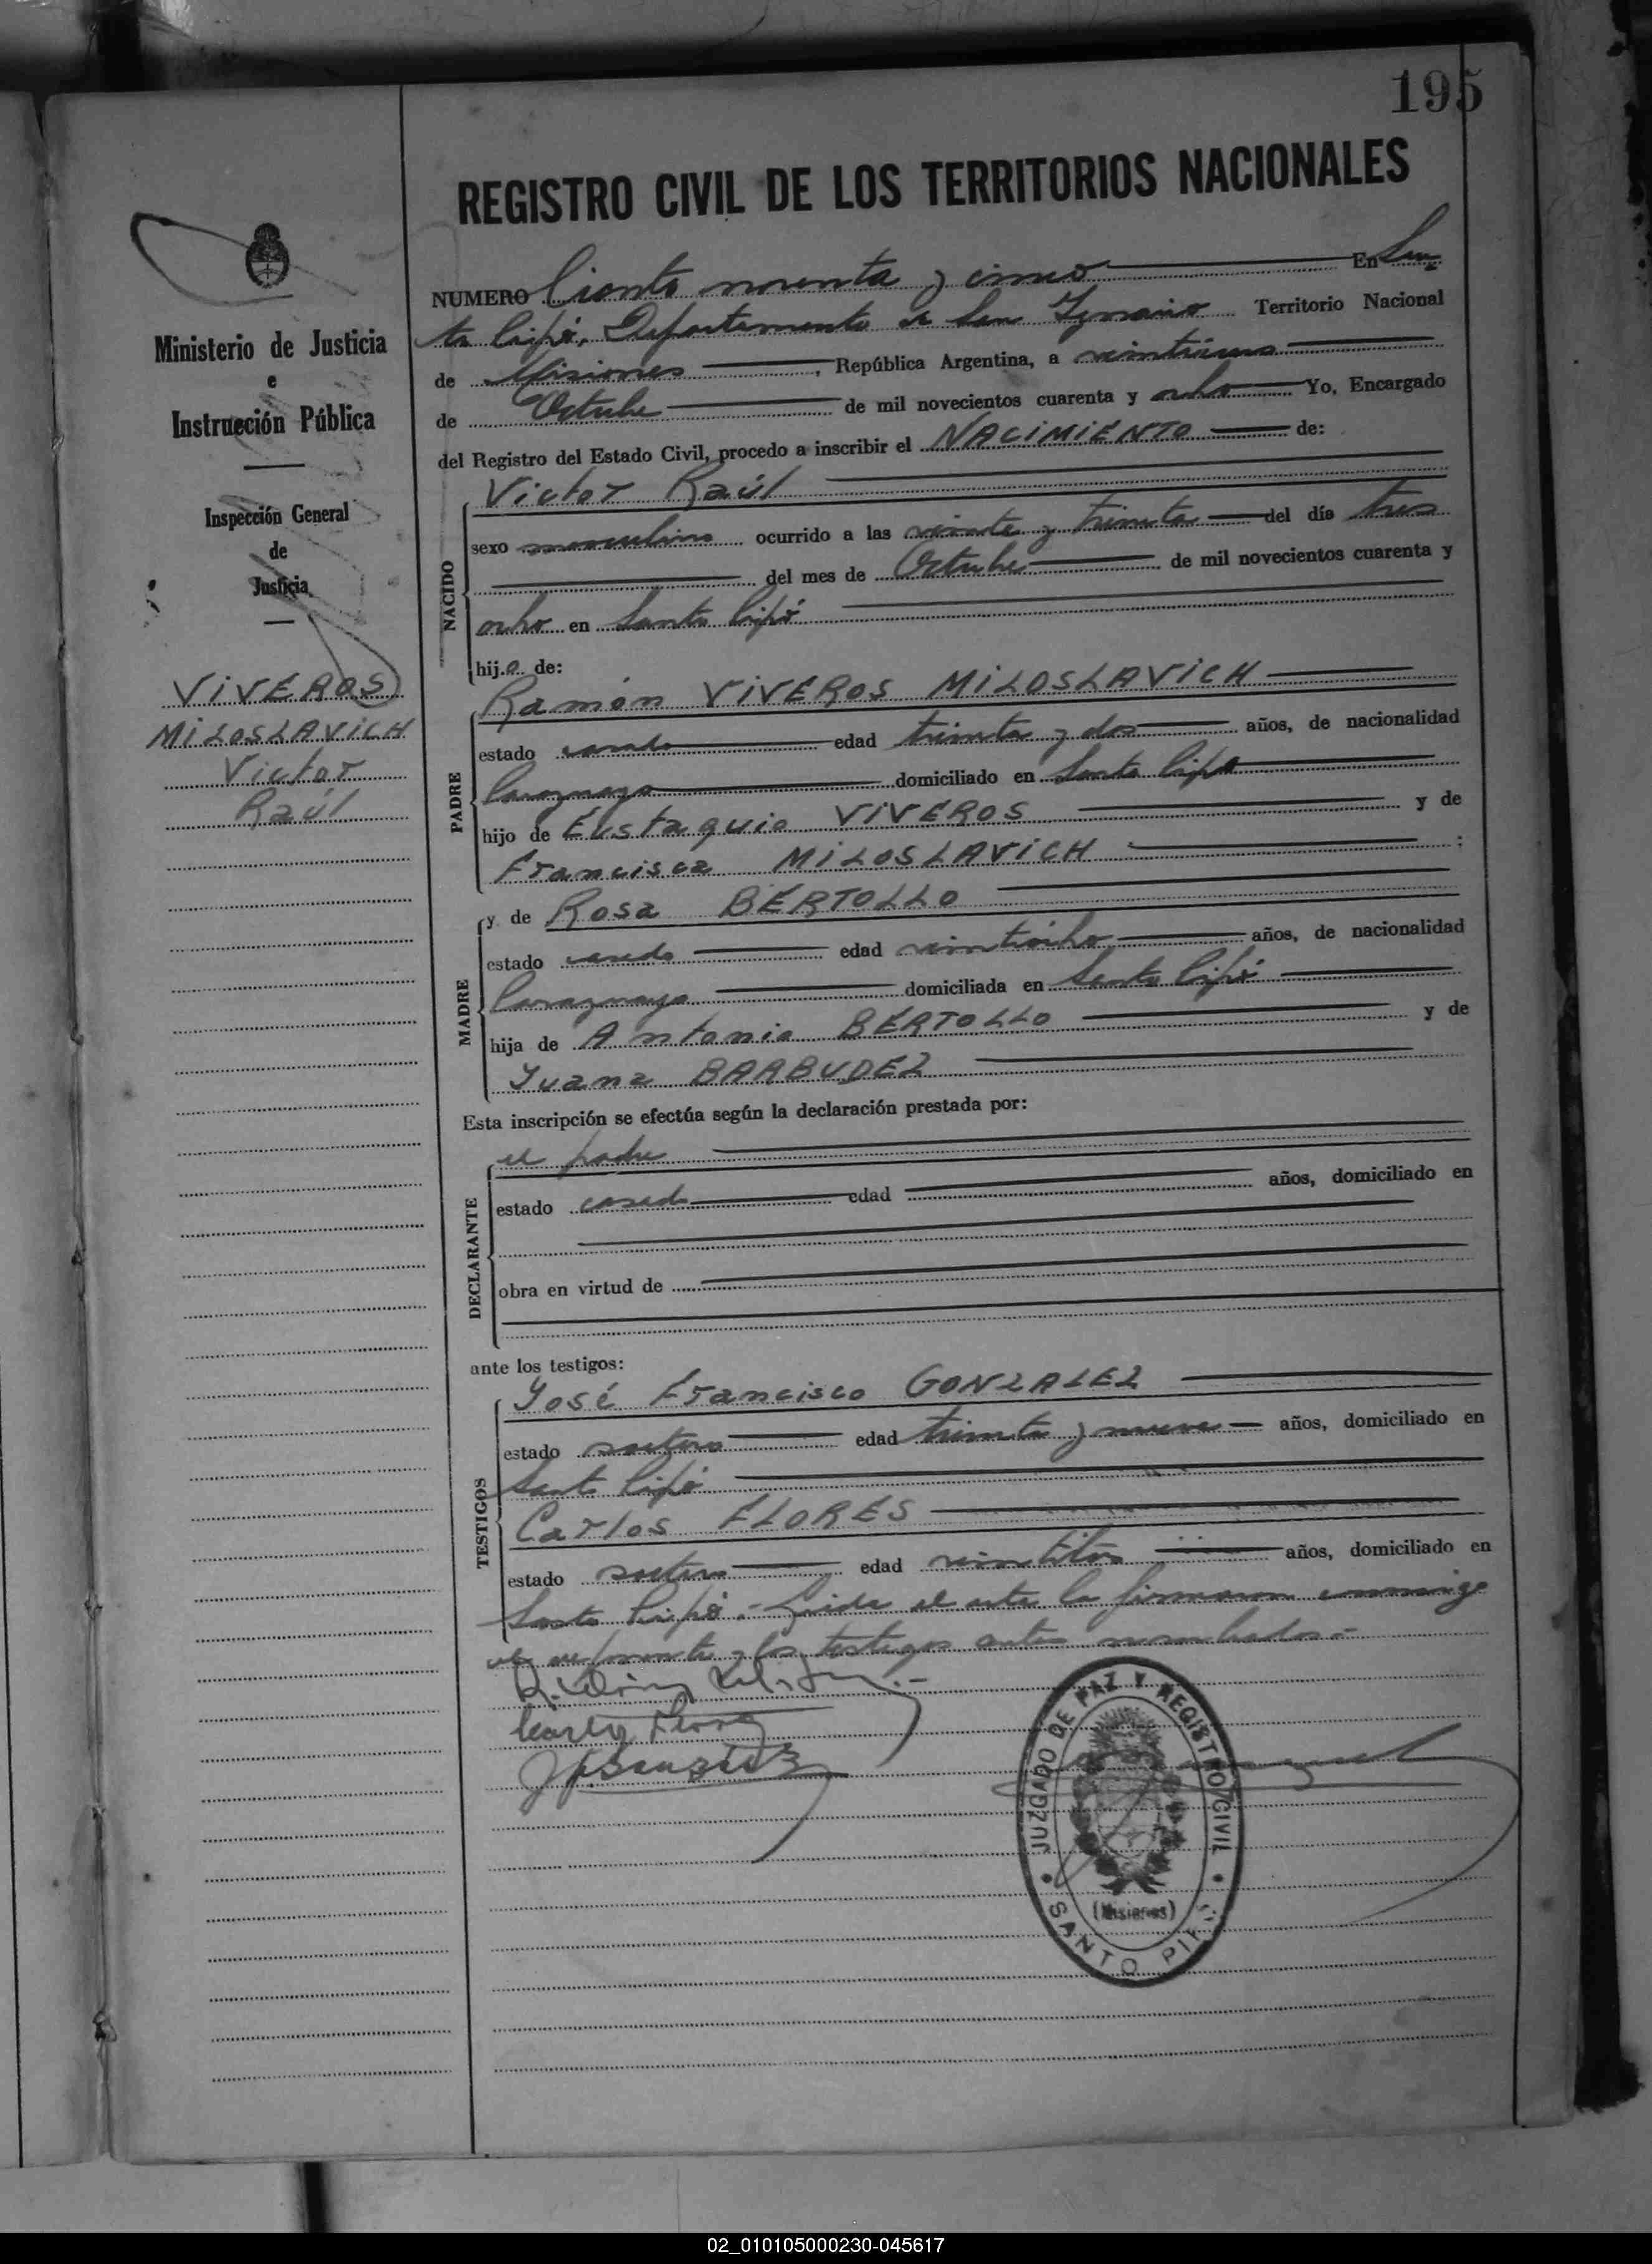 195
REGISTRO CIVIL DE LOS TERRITORIOS NACIONALES
Ministerio de Justicia
e
Instrucción Pública
Inspección General
de
Justicia
VIVEROS
MILOSLAVICH
Victor
Raúl
NUMERO Ciento noventa y cinco En San
to Pipó, Departamento de San Ignacio Territorio Nacional
de Misiones, República Argentina, a
de Octubre de mil novecientos cuarenta y ocho Yo, Encargado
del Registro del Estado Civil, procedo a inscribir el NACIMIENTO de:
NACIDO
Victor Raúl
sexo masculino ocurrido a las veinte y treinta del día tres
del mes de Octubre de mil novecientos cuarenta y
ocho en Santo Pipó
hijo de:
PADRE
Ramón VIVEROS MILOSLAVICH
estado casado edad treinta y dos años, de nacionalidad
Paraguaya domiciliado en Santo Pipó
hijo de Eustaquio VIVEROS y de
Francisca MILOSLAVICH :
MADRE
y de Rosa BERTOLLO
estado casada edad veintiocho años, de nacionalidad
Paraguaya domiciliada en Santo Pipó
hija de Antonio BERTOLLO y de
Juana BARBUDEZ
Esta inscripción se efectúa según la declaración prestada por:
DECLARANTE
el padre
estado casado edad años, domiciliado en
obra en virtud de
ante los testigos:
TESTIGOS
José Francisco GONZALEZ
estado soltero edad treinta y nueve años, domiciliado en
Santo Pipó
Carlos FLORES
estado soltero edad años, domiciliado en
Santo Pipó.- Leída el acta la firmaron conmigo
el exponente y los testigos antes nombrados.-
Carlos Flores
JUZGADO DE PAZ Y REGISTRO CIVIL
(Misiones)
SANTO PIPÓ
02_010105000230-045617